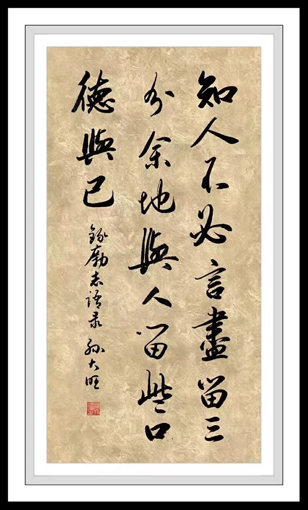 知人不必言盡留三
分余地與人留些口
德與己
錄励志语录 孙大旺